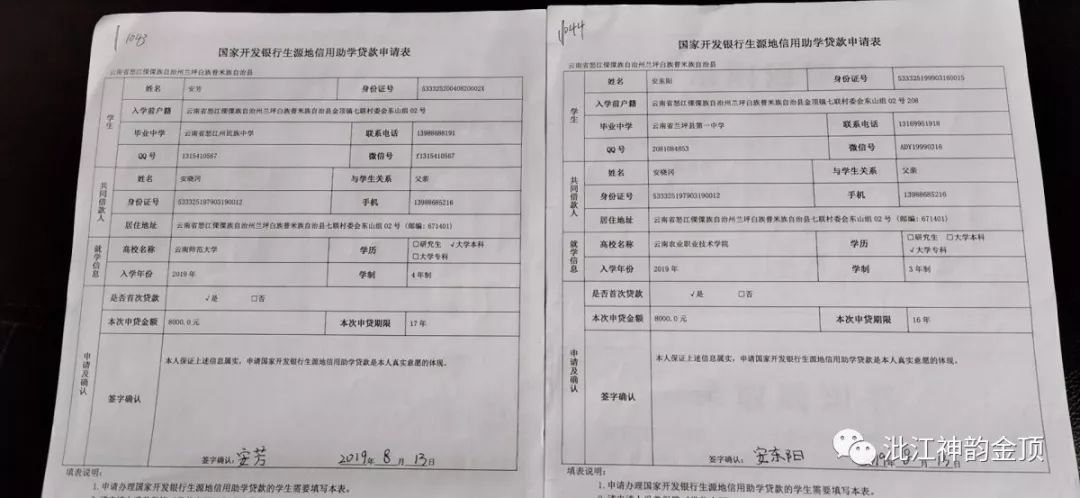 1043
国家开发银行生源地信用助学贷款申请表
云南省怒江傈僳族自治州兰坪白族普米族自治县
学生
姓名 安芳 身份证号 53332520040820002X
入学前户籍 云南省怒江傈僳族自治州兰坪白族普米族自治县金顶镇七联村委会东山组02号
毕业中学 云南省怒江州民族中学 联系电话 13988688191
QQ号 1315410567 微信号 f1315410567
共同借款人
姓名 安晓河 与学生关系 父亲
身份证号 533325197903190012 手机 13988685216
居住地址 云南省怒江傈僳族自治州兰坪白族普米族自治县七联村委会东山组02号(邮编:671401)
就学信息
高校名称 云南师范大学 学历 □研究生 √大学本科
□大学专科
入学年份 2019年 学制 4年制
申请及确认
是否首次贷款 √是 □否
本次申贷金额 8000.0元 本次申贷期限 17年
本人保证上述信息属实,申请国家开发银行生源地信用助学贷款是本人真实意愿的体现。
签字确认
签字确认:安芳 2019年8月13日
填表说明:
1.申请办理国家开发银行生源地信用助学贷款的学生需要填写本表。
1044
国家开发银行生源地信用助学贷款申请表
云南省怒江傈僳族自治州兰坪白族普米族自治县
学生
姓名 安东阳 身份证号 533325199903160015
入学前户籍 云南省怒江傈僳族自治州兰坪白族普米族自治县金顶镇七联村委会东山组02号208
毕业中学 云南省兰坪县第一中学 联系电话 13169951918
QQ号 2081084853 微信号 ADY19990316
共同借款人
姓名 安晓河 与学生关系 父亲
身份证号 533325197903190012 手机 13988685216
居住地址 云南省怒江傈僳族自治州兰坪白族普米族自治县七联村委会东山组02号(邮编:671401)
就学信息
高校名称 云南农业职业技术学院 学历 □研究生 □大学本科
√大学专科
入学年份 2019年 学制 3年制
申请及确认
是否首次贷款 √是 □否
本次申贷金额 8000.0元 本次申贷期限 16年
本人保证上述信息属实,申请国家开发银行生源地信用助学贷款是本人真实意愿的体现。
签字确认
签字确认:安东阳
填表说明:
1.申请办理国家开发银行生源地信用助学贷款的学生需要填写本表。
沘江神韵金顶